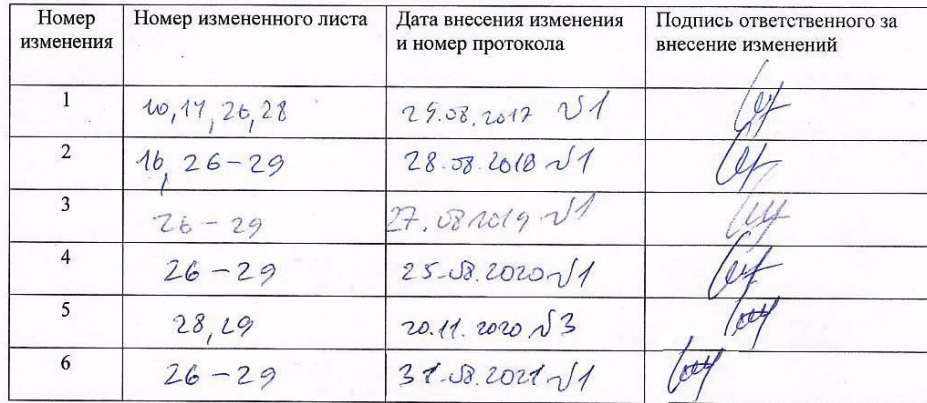 Номер изменения Номер измененного листа Дата внесения изменения и номер протокола Подпись ответственного за внесение изменений
1 10,17,26,28 29.08.2017 №1
2 16, 26-29 28.08.2018 №1
3 26-29 27.08.2019 №1
4 26-29 25.08.2020 №1
5 28,29 20.11.2020 №3
6 26-29 31.08.2021 №1